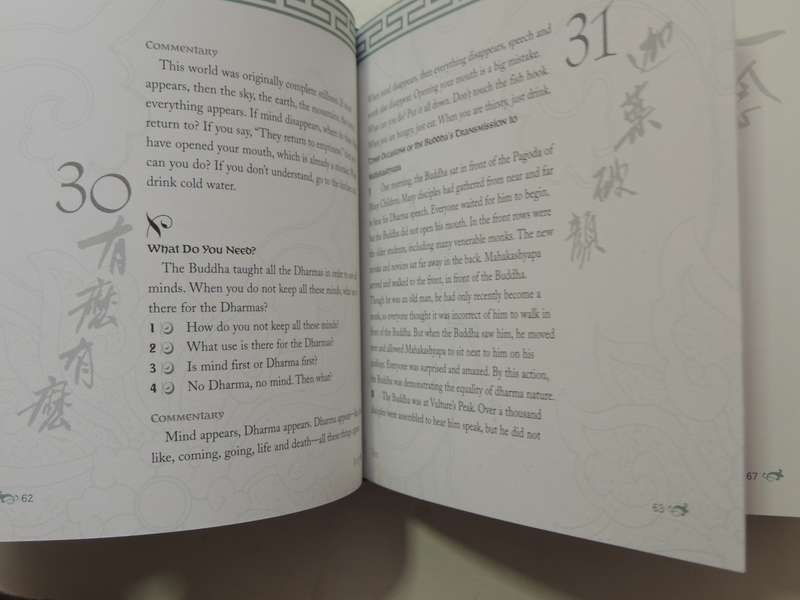 Commentary
This world was originally complete stillness.
appears, then the sky, the earth, the mountains,
everything appears. If mind disappears, where do
return to? If you say, "They return to emptiness,"
have opened your mouth, which is already a mistake.
can you do? If you don't understand, go to the kitchen
drink cold water.
30
有麼有麼
What Do You Need?
The Buddha taught all the Dharmas in order to
minds. When you do not keep all these minds, what
there for the Dharmas?
1 How do you not keep all these minds?
2 What use is there for the Dharmas?
3 Is mind first or Dharma first?
4 No Dharma, no mind. Then what?
Commentary
Mind appears, Dharma appears. Dharma
like, coming, going, life and death—all these things
62
31
迦葉破顏
When mind disappears, then everything disappears, speech and
words also disappear. Opening your mouth is a big mistake.
What can you do? Put it all down. Don't touch the fish hook.
When you are hungry, just eat. When you are thirsty, just drink.
Three Occasions of the Buddha's Transmission to
Mahakashyapa
1 One morning, the Buddha sat in front of the Pagoda of
Many Children. Many disciples had gathered from near and far
to hear his Dharma speech. Everyone waited for him to begin,
but the Buddha did not open his mouth. In the front rows were
the older students, including many venerable monks. The new
monks and novices sat far away in the back. Mahakashyapa
arrived and walked to the front, in front of the Buddha.
Though he was an old man, he had only recently become a
monk, so everyone thought it was incorrect of him to walk in
front of the Buddha. But when the Buddha saw him, he moved
over and allowed Mahakashyapa to sit next to him on his
cushion. Everyone was surprised and amazed. By this action,
the Buddha was demonstrating the equality of dharma nature.
The Buddha was at Vulture's Peak. Over a thousand
disciples were assembled to hear him speak, but he did not
63
67